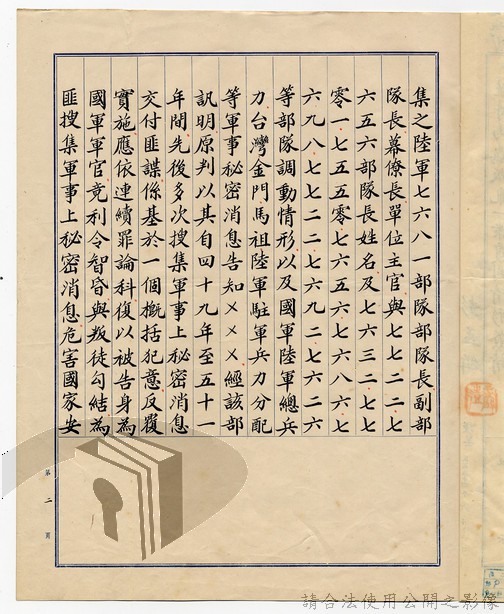 集之陸軍七六八一部隊部隊長副部
隊長幕僚長單位主官與七七二二七
六五六部隊長姓名及七六三二七七
零一七五五零七六五六七六八六七
六九八七七二二七六九二七六二六
等部隊調動情形以及國軍陸軍總兵
力台灣金門馬祖陸軍駐軍兵力分配
等軍事秘密消息告知×××經該部
訊明原判以其自四十九年至五十一
年間先後多次搜集軍事上秘密消息
交付匪諜係基於一個概括犯意反覆
實施應依連續罪論科復以被告身為
國軍軍官竟利令智昏與叛徒勾結為
匪搜集軍事上秘密消息危害國家安
第二頁
請合法使用公開之影像